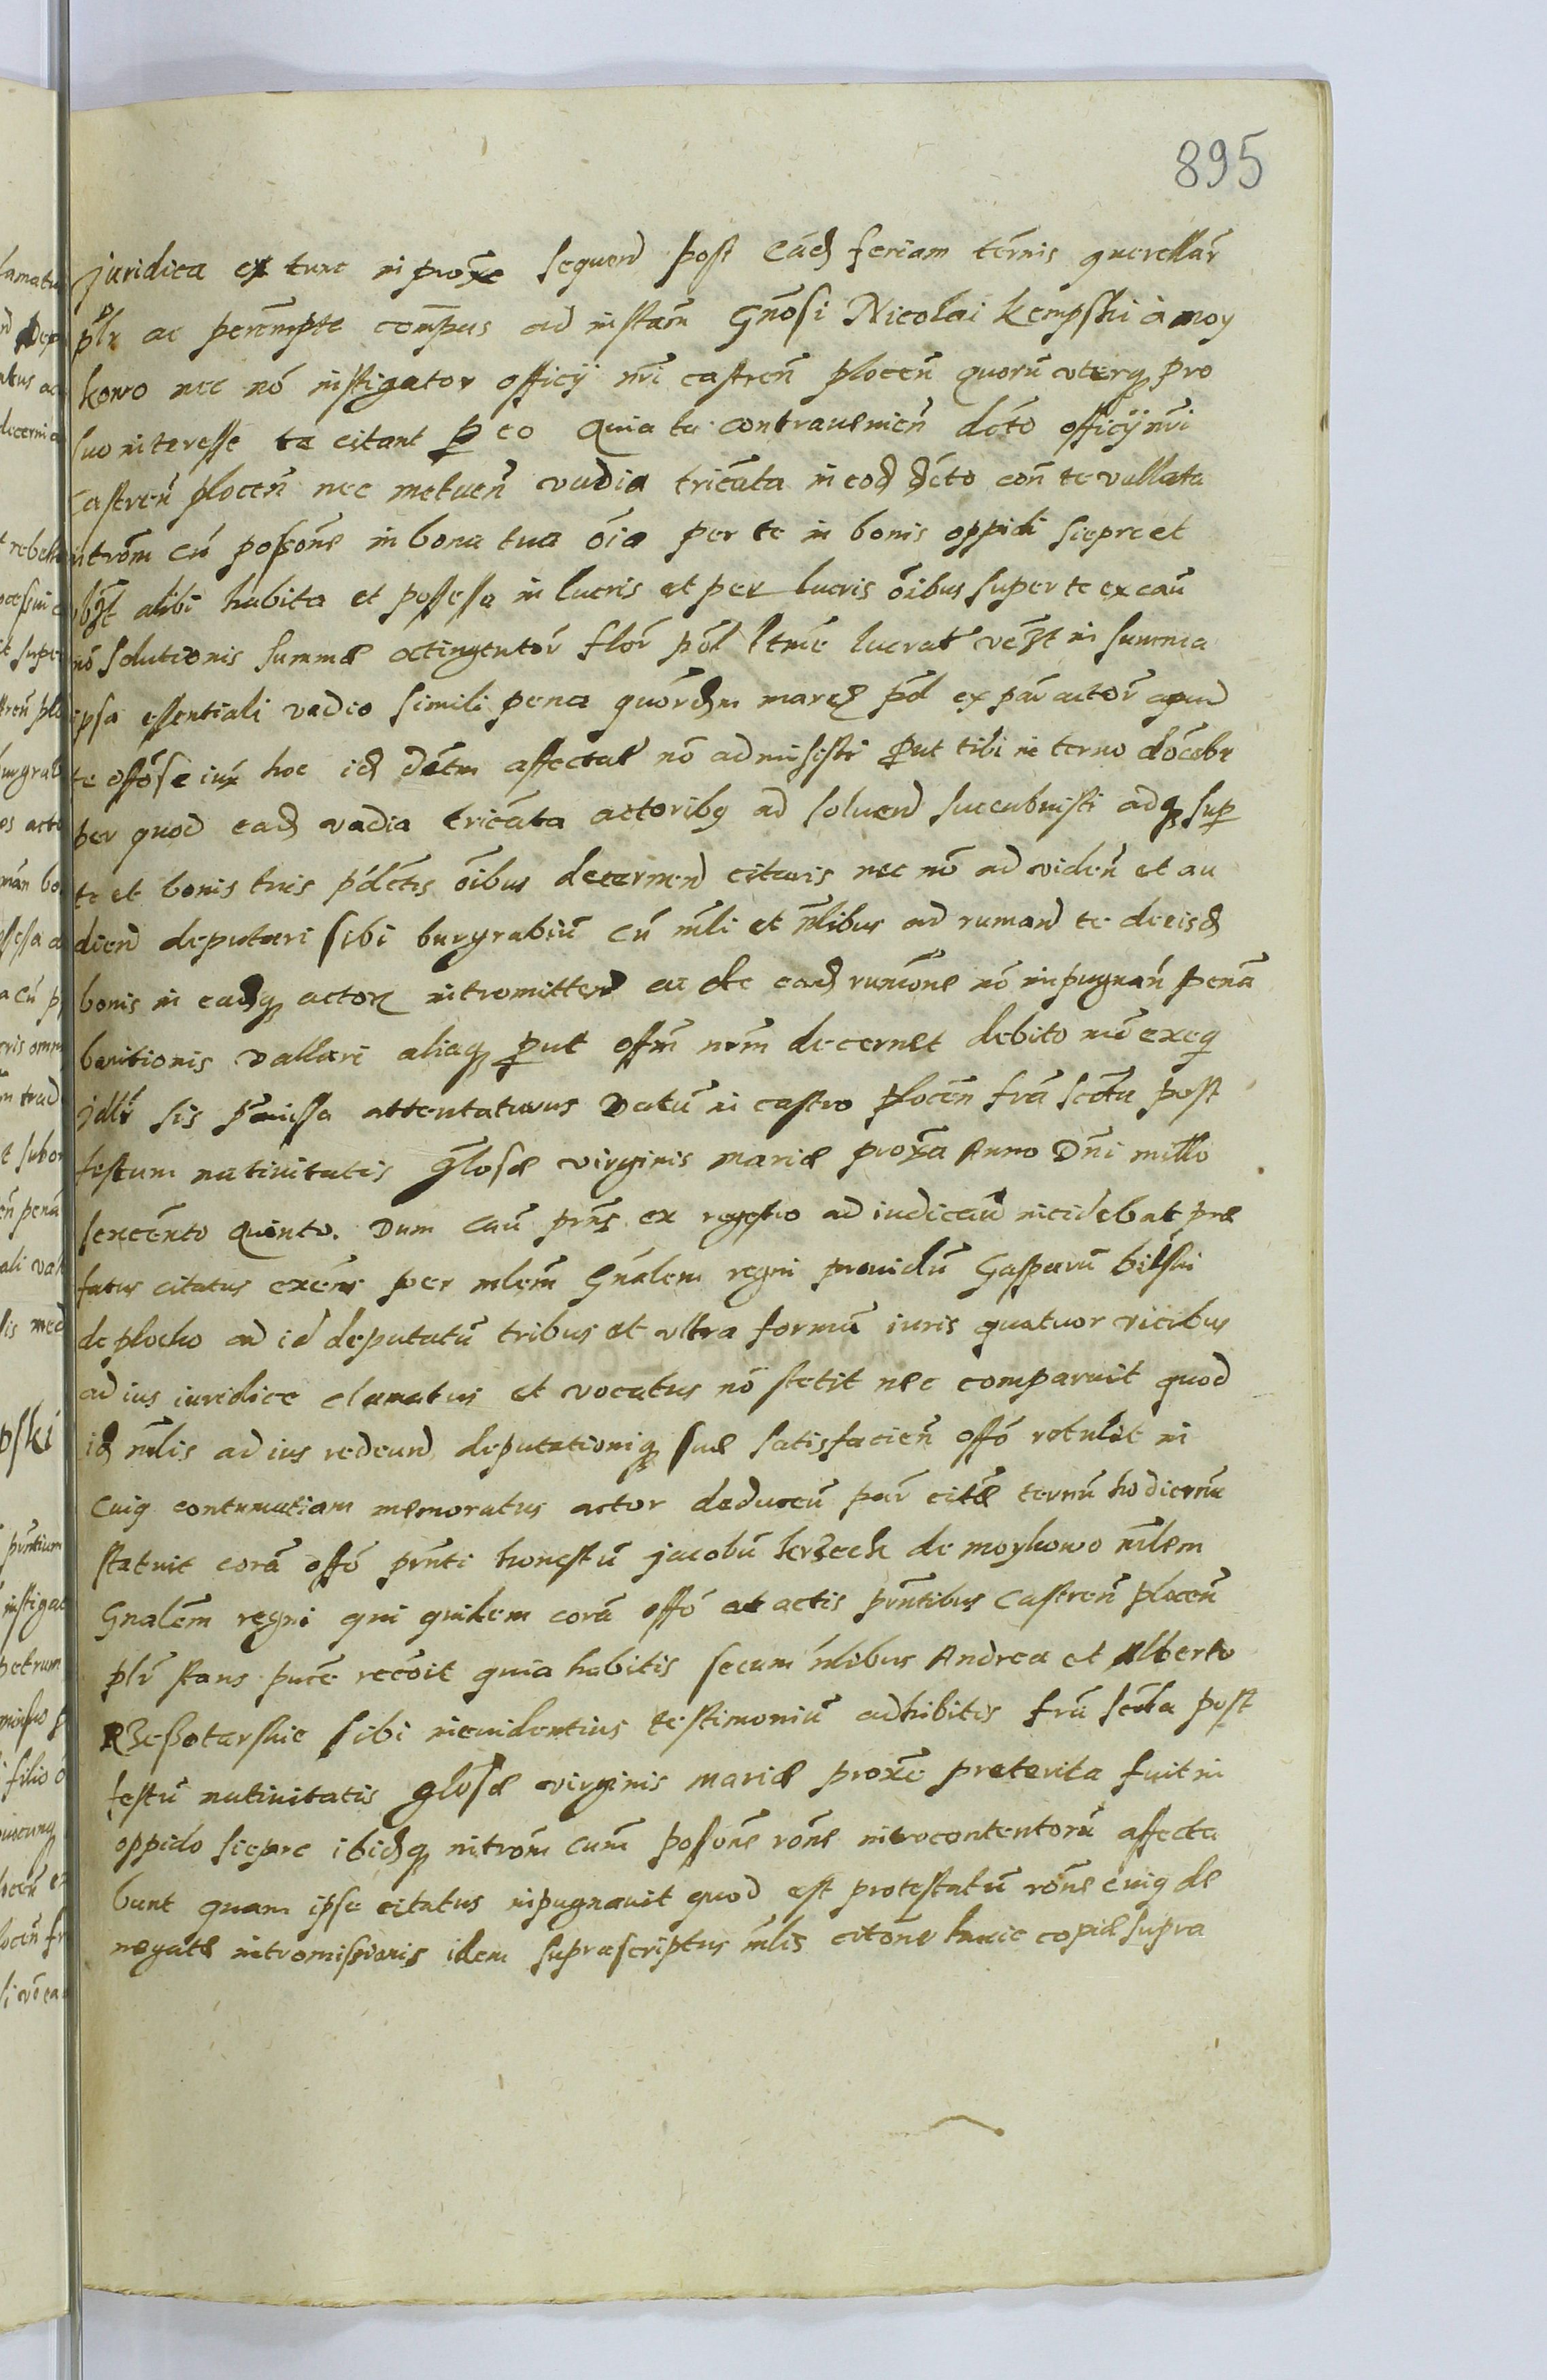 895
juridica ex tunc in proxe sequend post eand feriam termis querellar
plr ac perempte compus ad instam Gnosi Nicolai Kempski à moy
kowo nec nó instigator officij nri castreñ plocen quorú uterq pro
suo interesse te citant p eo Quia tu contrauenieñ dcto officij nri
Castreñ plocen nec metueñ vadia tricata in eod dcto con te vallata
introm cú possone in bona tua oia per te in bonis oppidi sieprc et
vbiqt alibi habita et possessa in lucris et per lucris oibus super te ex cau
nó solutionis summæ octingentor flor pol ltme lucrat in summa
ipsa essentiali vadio simili pena quordem marcs pol ex par actor apud
te offose iux hoc id dctm affectat nó admisisti put tibi in termo docebr
per quod ead vadia tricata actoribq ad soluend succubuisti adq sup
te et bonis tuis pdctis oibus decernend citaris nec nó ad videñ et au
diend deputari sibi burgrabiú cú mli et nlibus ad rumand te de eisd
bonis in eadq actor intromittend ac de ead rumone nó inpugnañ pena
banitionis vallari aliaq put offm nrm decernet debito me exeq
jdllr sis pmissa attentaturus Datú in castro plocen fra scda post
festum natiuitatis Glosæ virginis mariæ proxa Anno Dni millo
sexcento Quinto. Dum cau prns ex regestro ad iudicaú incidebat præ
fatus citatus exens per mlem Gnalem regni prouidú Gasparú bilski
de plocko ad id deputatú tribus et vltra formá iuris quatuor vicibus
ad ius iuridice clamatus et vocatus nó stetit nec comparuit quod
id mlis ad ius redeund deputationiq suæ satisfacien offó retulit in
cuiq contumatiam memoratus actor deduceú par citæ termú hodiernú
statuit corá offó prnti honestú jacobú kerzeek de moykowo mlem
Gnalem regni qui quidem corá offó et actis prntibus Castreñ plocen
plr stans pure recoit quia habitis secum nlibus Andrea et Alberto
Rzeszotarskie sibi in euidentius testimoniú adhibitis fra scda post
festú natiuitatis glosæ virginis mariæ proxe preterita fuit in
oppido sieprc ibidq introm cum possone rone introcontentorú affecta
bant quam ipse citatus inpugnauit quod est protestatú rone cuiq de
negatæ intromissionis idem suprascriptus mlis citone huic copiæ supra